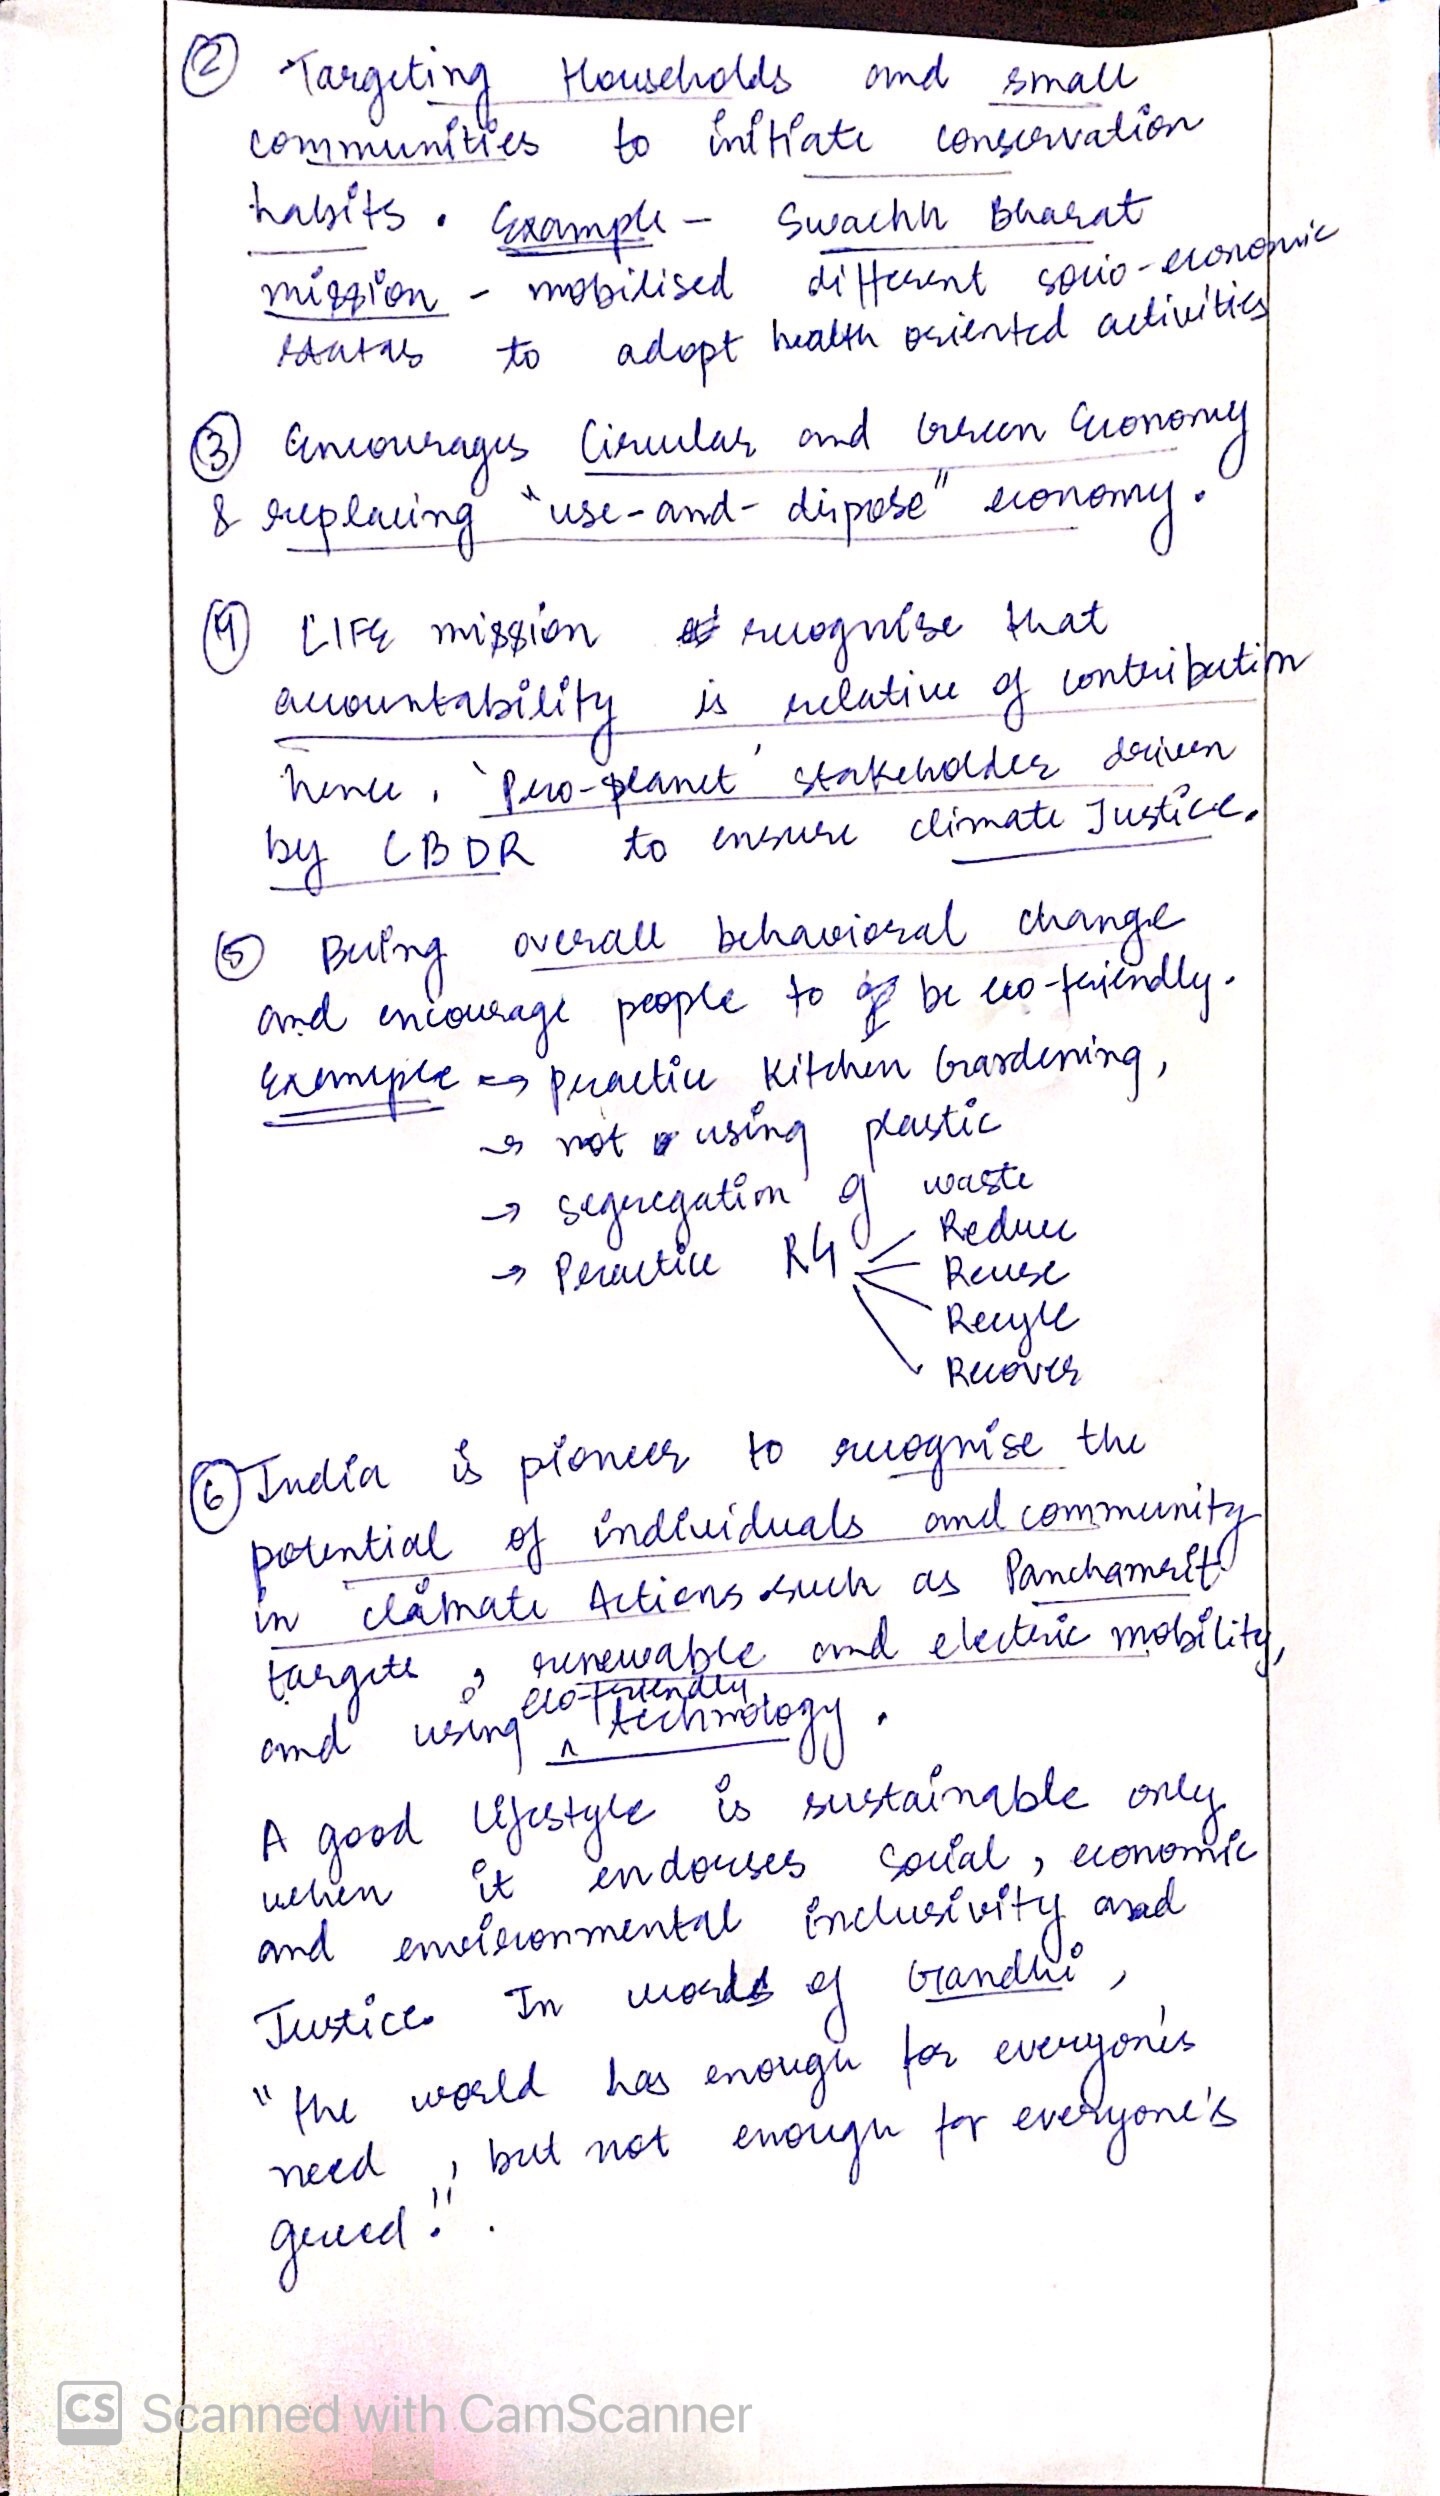 ② Targeting Households and small
communities to initiate conservation
habits. Example - Swachh Bharat
mission - mobilised different socio-economic
status to adopt health oriented activities
③ Encourages Circular and Green Economy
& replacing "use-and-dispose" economy.
④ LIFE mission recognise that
accountability is relative of contribution
hence, 'Pro-planet' stakeholder driven
by CBDR to ensure climate Justice.
⑤ Bring overall behavioral change
and encourage people to be eco-friendly.
Example → practice Kitchen Gardening,
→ not using plastic
→ segregation of waste
→ Practice R4
Reduce
Reuse
Recycle
Recover
⑥ India is pioneer to recognise the
potential of individuals and community
in climate Actions such as Panchamrit
targets, renewable and electric mobility,
and using eco-friendly technology.
A good lifestyle is sustainable only
when it endorses Social, economic
and environmental inclusivity and
Justice. In words of Gandhi,
"the world has enough for everyone's
need, but not enough for everyone's
greed!".
CS Scanned with CamScanner